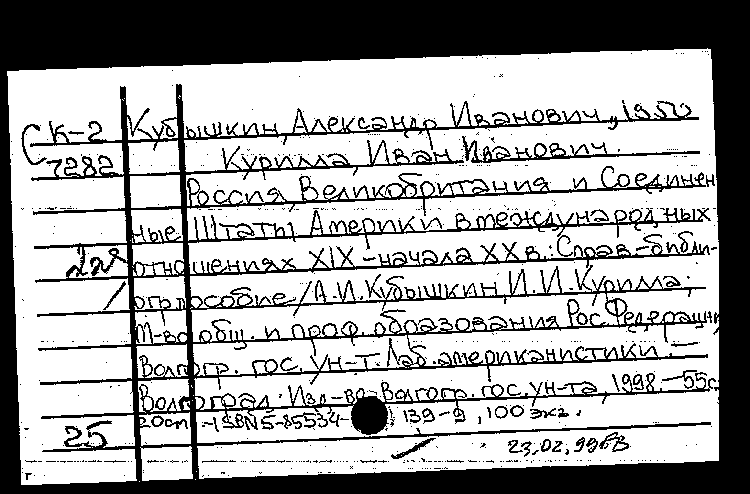 СК-2 Кубышкин, Александр Иванович, 1950
7282 Курилла, Иван Иванович.
Россия, Великобритания и Соединен
ные Штаты Америки в международных
отношениях XIX - начала XX в.: Справ.-библи-
огр. пособие / А.И. Кубышкин, И.И. Курилла;
М-во общ. и проф. образования Рос. Федерации,
Волгогр. гос. ун-т. Лаб. американистики. -
Волгоград: Изд-во Волгогр. гос. ун-та, 1998. - 55с
20см - ISBN 5-85534-139-9, 100 экз.
25
23.02.99